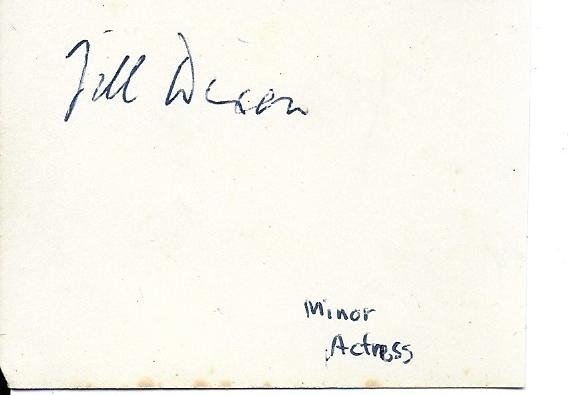 Jill Dixon
Minor
Actress